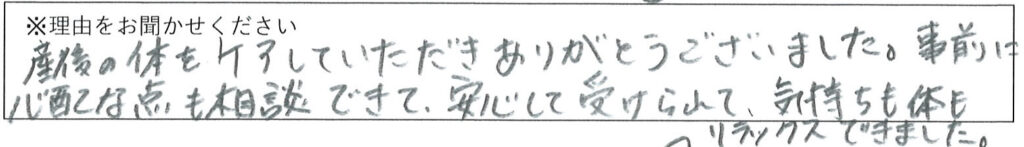 ※理由をお聞かせください
産後の体をケアしていただきありがとうございました。事前に
心配な点も相談できて、安心して受けられて、気持ちも体も
リラックスできました。